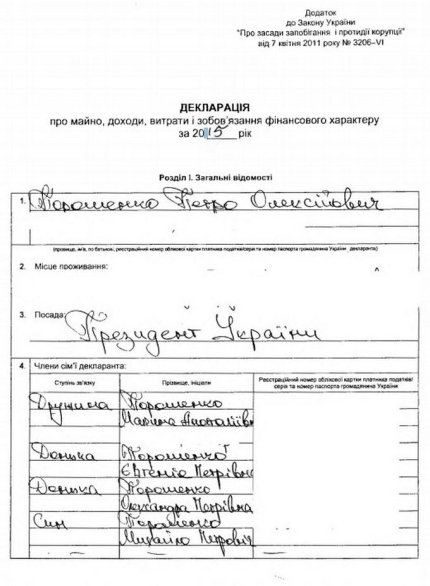 Додаток
до Закону України
"Про засади запобігання і протидії корупції"
від 7 квітня 2011 року № 3206–VI
ДЕКЛАРАЦІЯ
про майно, доходи, витрати і зобов'язання фінансового характеру
за 2015 рік
Розділ I. Загальні відомості
1. Порошенко Петро Олексійович
(прізвище, ім'я, по батькові, реєстраційний номер облікової картки платника податків/серія та номер паспорта громадянина України декларанта)
2. Місце проживання:
3. Посада: Президент України
4. Члени сім'ї декларанта:
Ступінь зв'язку Прізвище, ініціали Реєстраційний номер облікової картки платника податків/
серія та номер паспорта громадянина України
Дружина Порошенко
Марина Анатоліївн
Донька Порошенко
Євгенія Петрівн
Донька Порошенко
Олександра Петрівна
Син Порошенко
Михайло Петрович